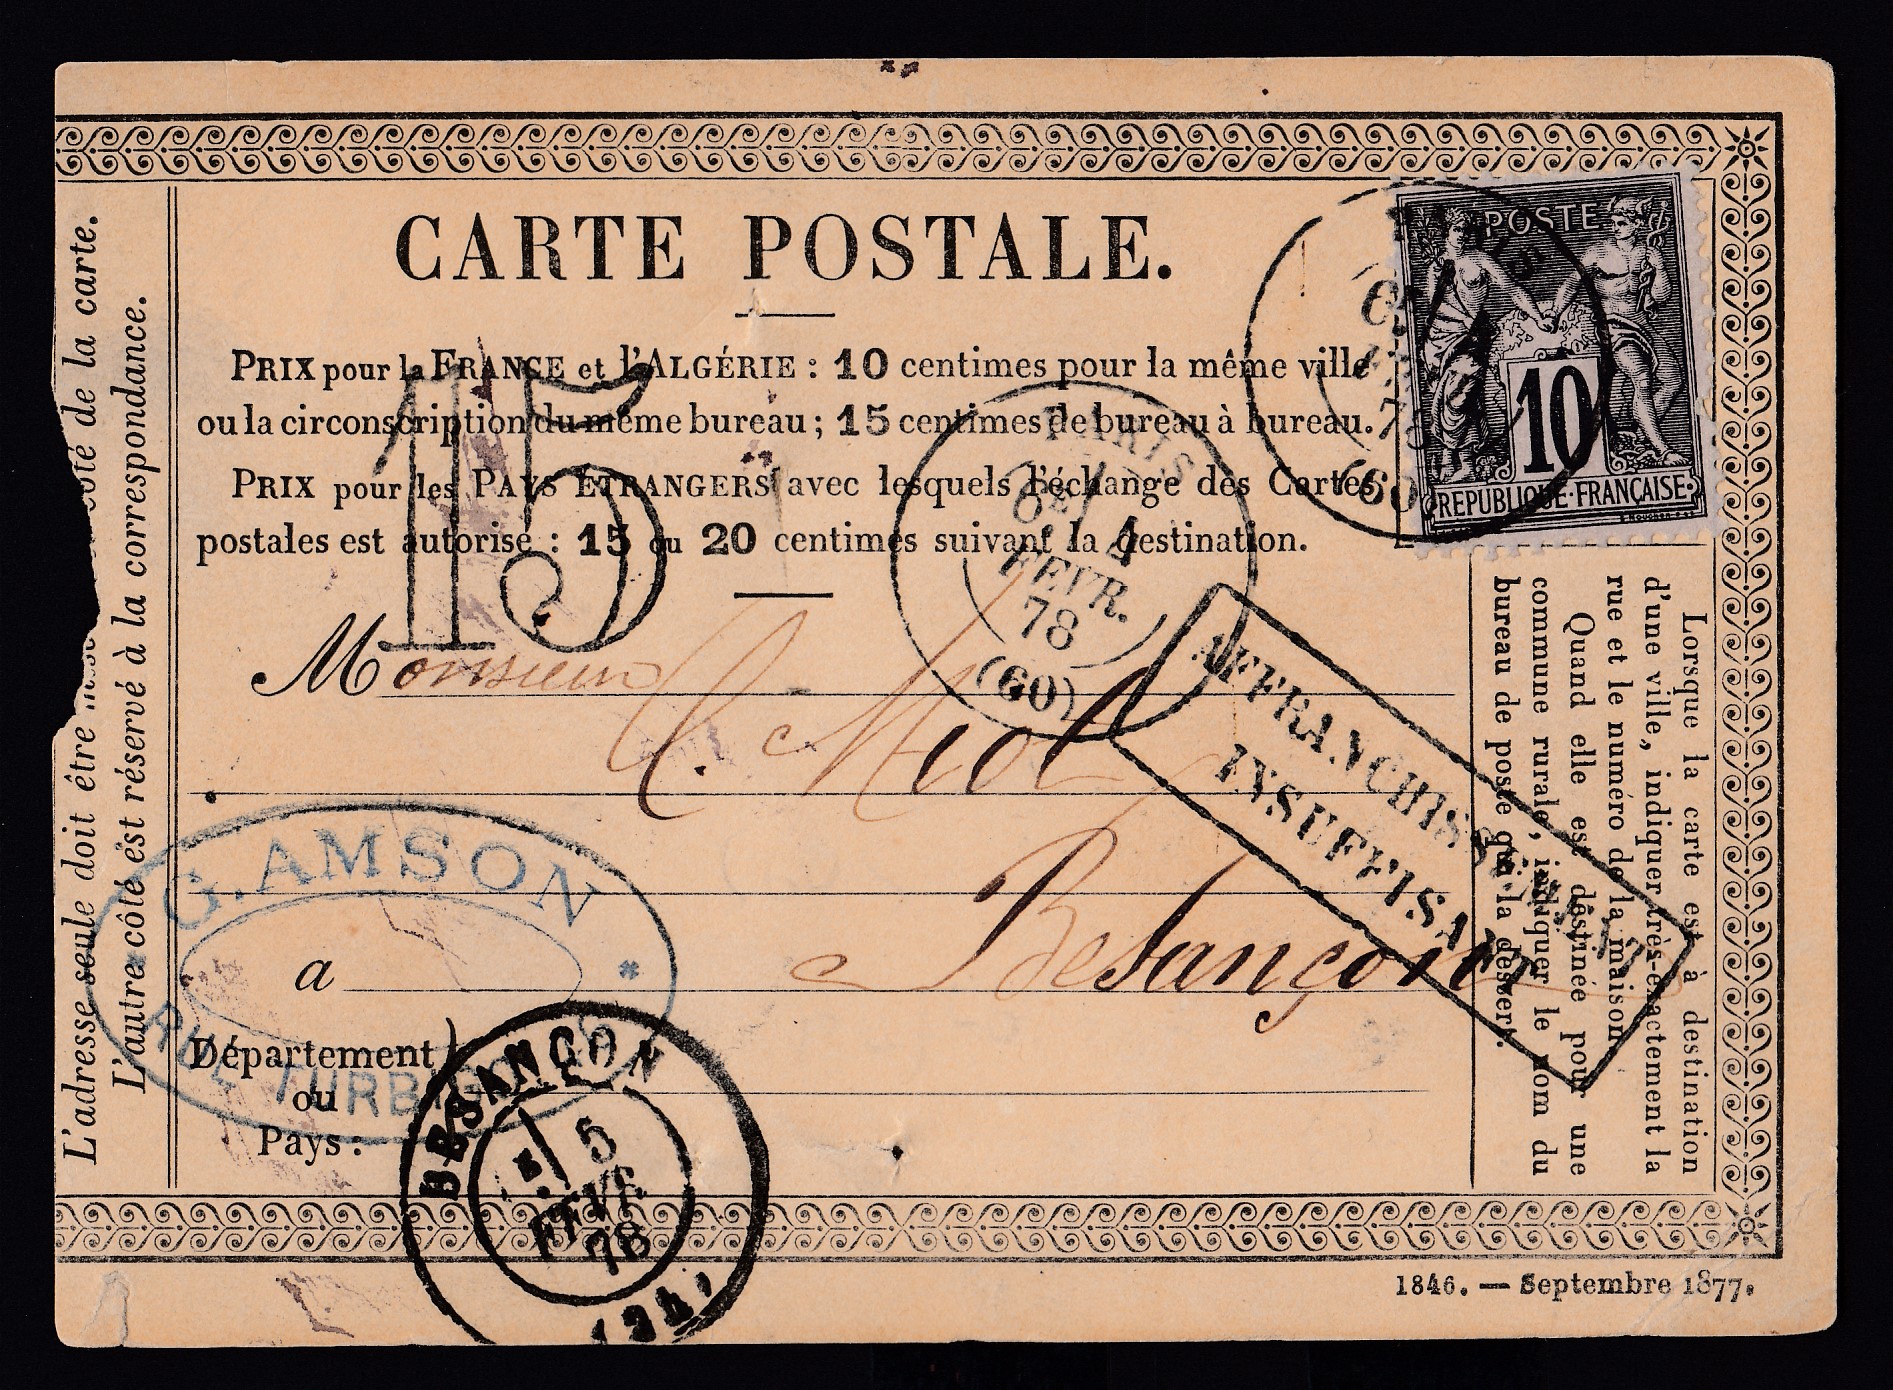 CARTE POSTALE.
PRIX pour la FRANCE et l'ALGÉRIE : 10 centimes pour la même ville
ou la circonscription du même bureau ; 15 centimes de bureau à bureau.
PRIX pour les PAYS ÉTRANGERS avec lesquels l'échange des Cartes
postales est autorisé : 15 ou 20 centimes suivant la destination.
15
POSTE
10
REPUBLIQUE FRANÇAISE
78
(60)
PARIS
4
FEVR.
78
(60)
AFFRANCHISSEMENT
INSUFFISANT
Monsieur
à
Besançon
Département
ou
Pays :
G. AMSON
RUE TURBIGO
BESANÇON
5
FEVR.
78
L'adresse seule doit être côté de la carte.
L'autre côté est réservé à la correspondance.
Lorsque la carte est à destination
d'une ville, indiquer très-exactement la
rue et le numéro de la maison.
Quand elle est destinée pour une
commune rurale, indiquer le nom du
bureau de poste qui la dessert.
1846. — Septembre 1877.